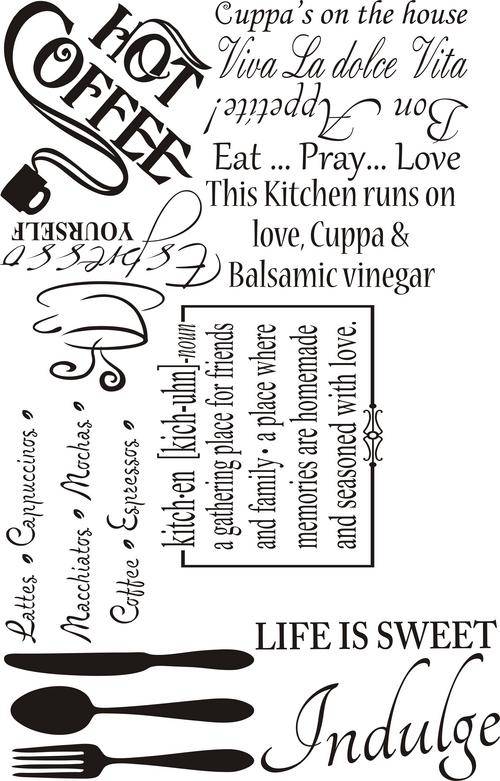 HOT
COFFEE
Cuppa's on the house
Viva La dolce Vita
Bon Appetite!
Eat ... Pray... Love
This Kitchen runs on
love, Cuppa &
Balsamic vinegar
Espresso
YOURSELF
kitch·en [kich-uhn]-noun
a gathering place for friends
and family · a place where
memories are homemade
and seasoned with love.
Lattes • Cappuccinos •
Macchiatos • Mochas •
Coffee • Espressos •
LIFE IS SWEET
Indulge